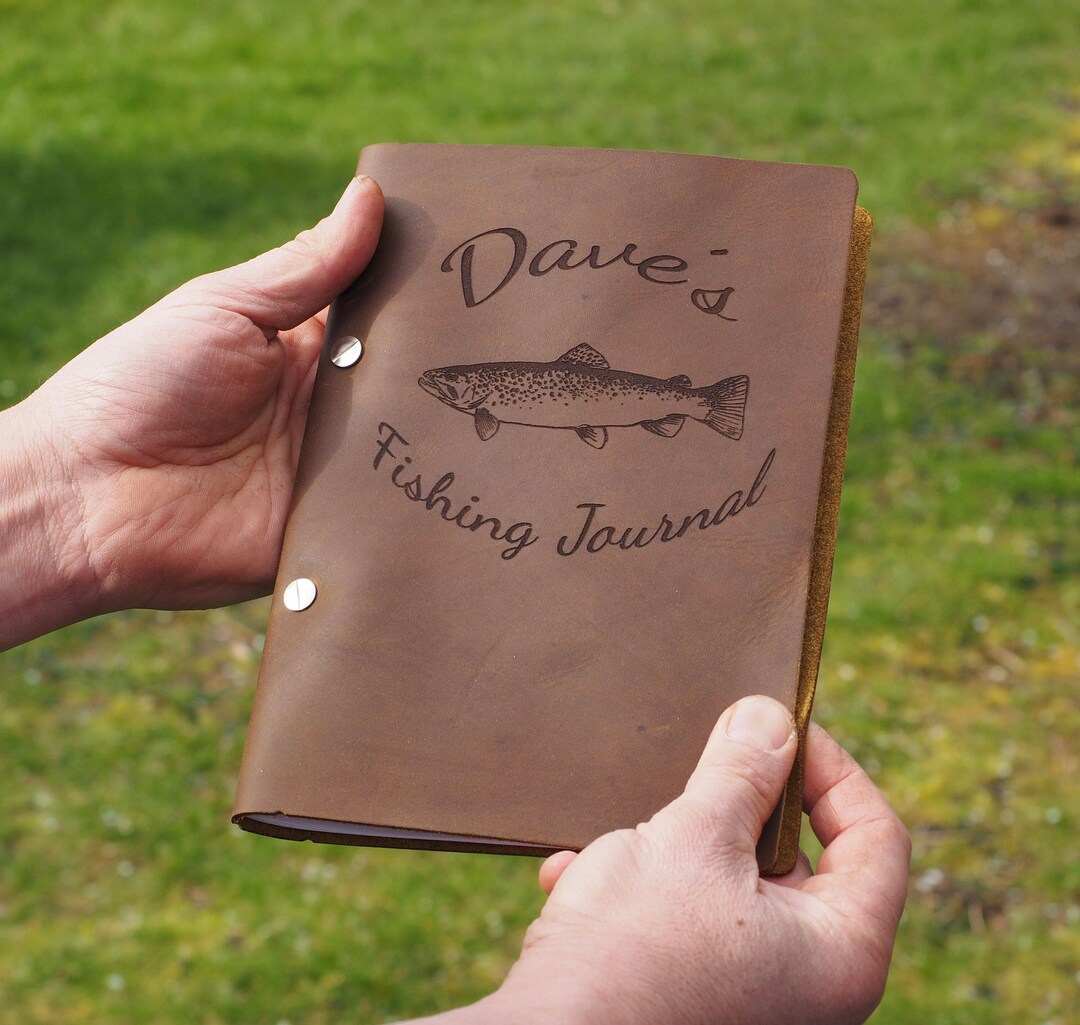 Dave's
Fishing Journal